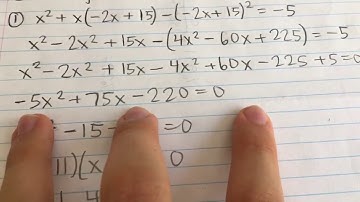 ① x² + x(-2x + 15) - (-2x + 15)² = -5
x² - 2x² + 15x - (4x² - 60x + 225) = -5
x² - 2x² + 15x - 4x² + 60x - 225 + 5 = 0
-5x² + 75x - 220 = 0
² - 15 = 0
11)(x 0